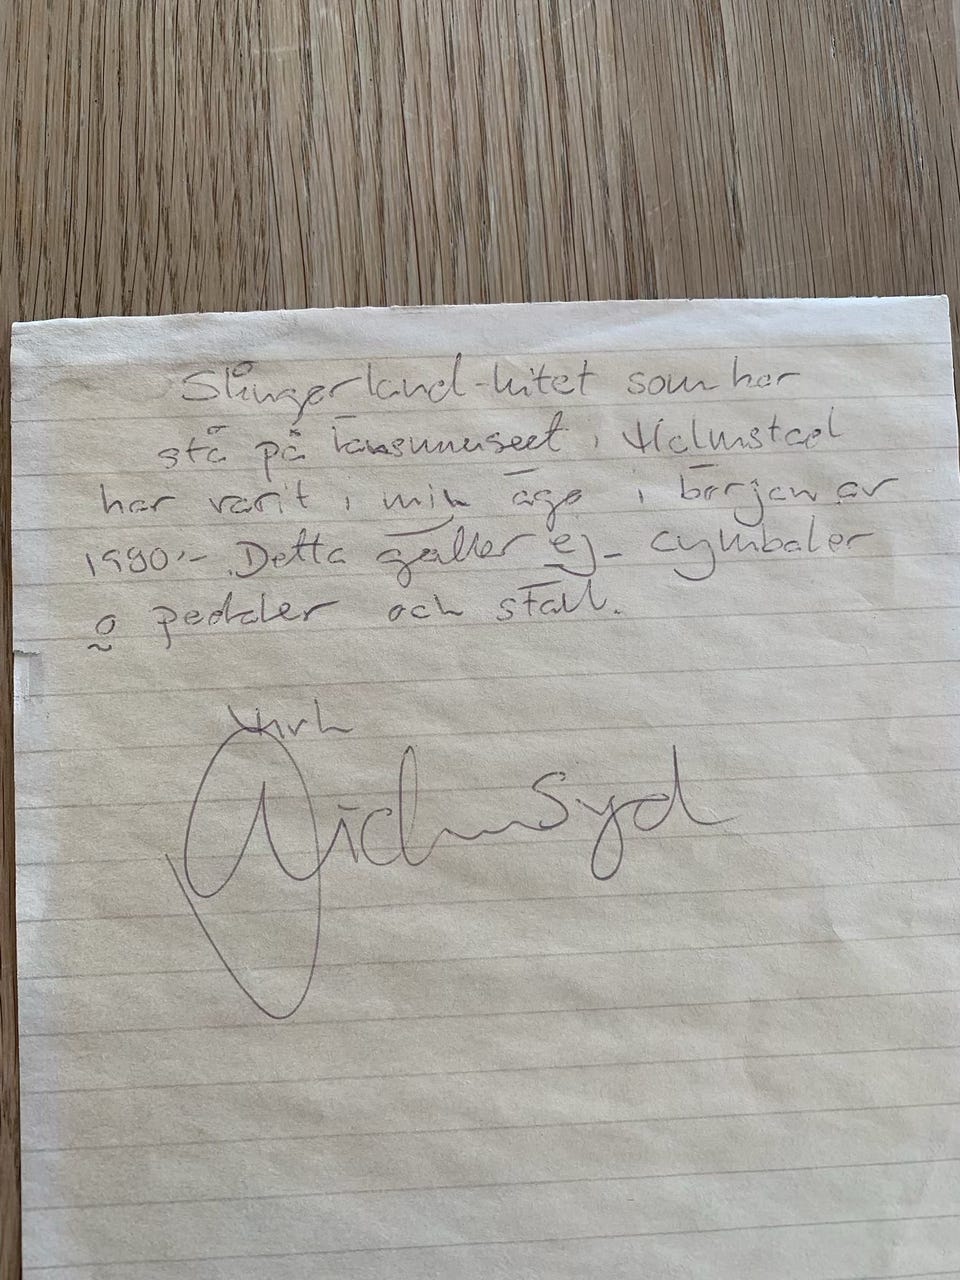 Slingerland-kitet som har
stå på länsmuseet i Halmstad
har varit i min ägo i början av
1990'- Detta gäller ej- cymbaler
o pedaler och ställ.
Syd